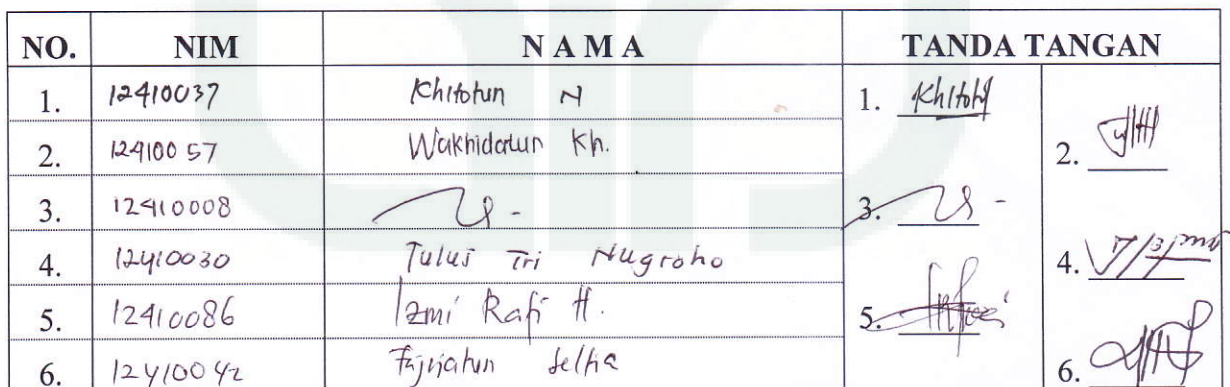 NO. NIM N A M A TANDA TANGAN
1. 12410037 Khitotun N 1. Khitotn
2. 12410057 Wakhidatun Kh. 2.
3. 12410008 3.
4. 12410030 Tulus Tri Nugroho 4.
5. 12410086 Izmi Rafi H. 5.
6. 12410042 6.